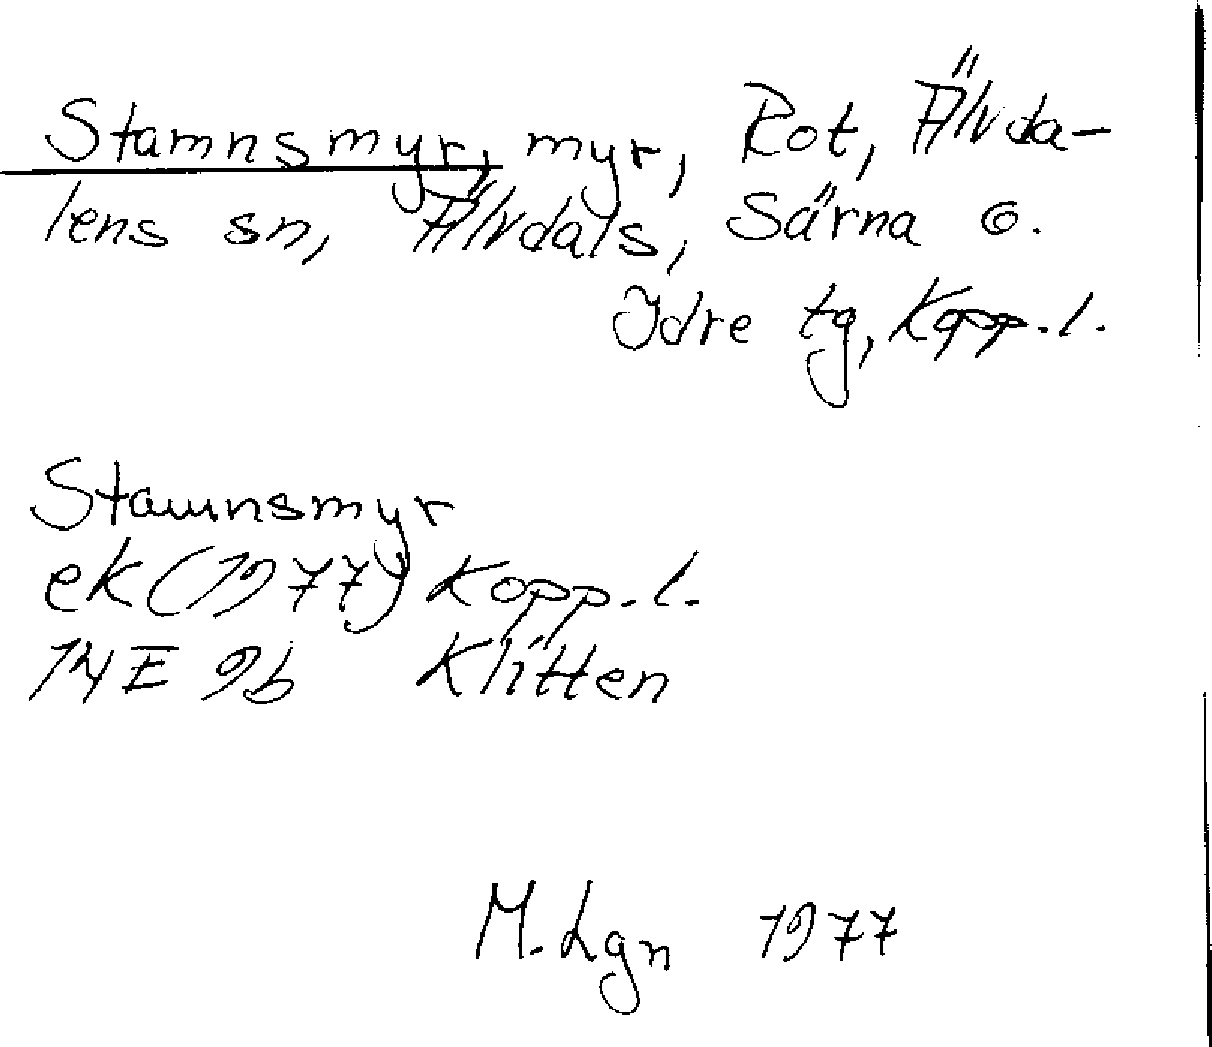 Stamnsmyr, myr, Rot, Älvda-
lens sn, Älvdals, Särna o.
Idre tg, Kopp.l.
Stamnsmyr
ek (1977) Kopp.l.
14E 9b Klitten
M. Lgn 1977